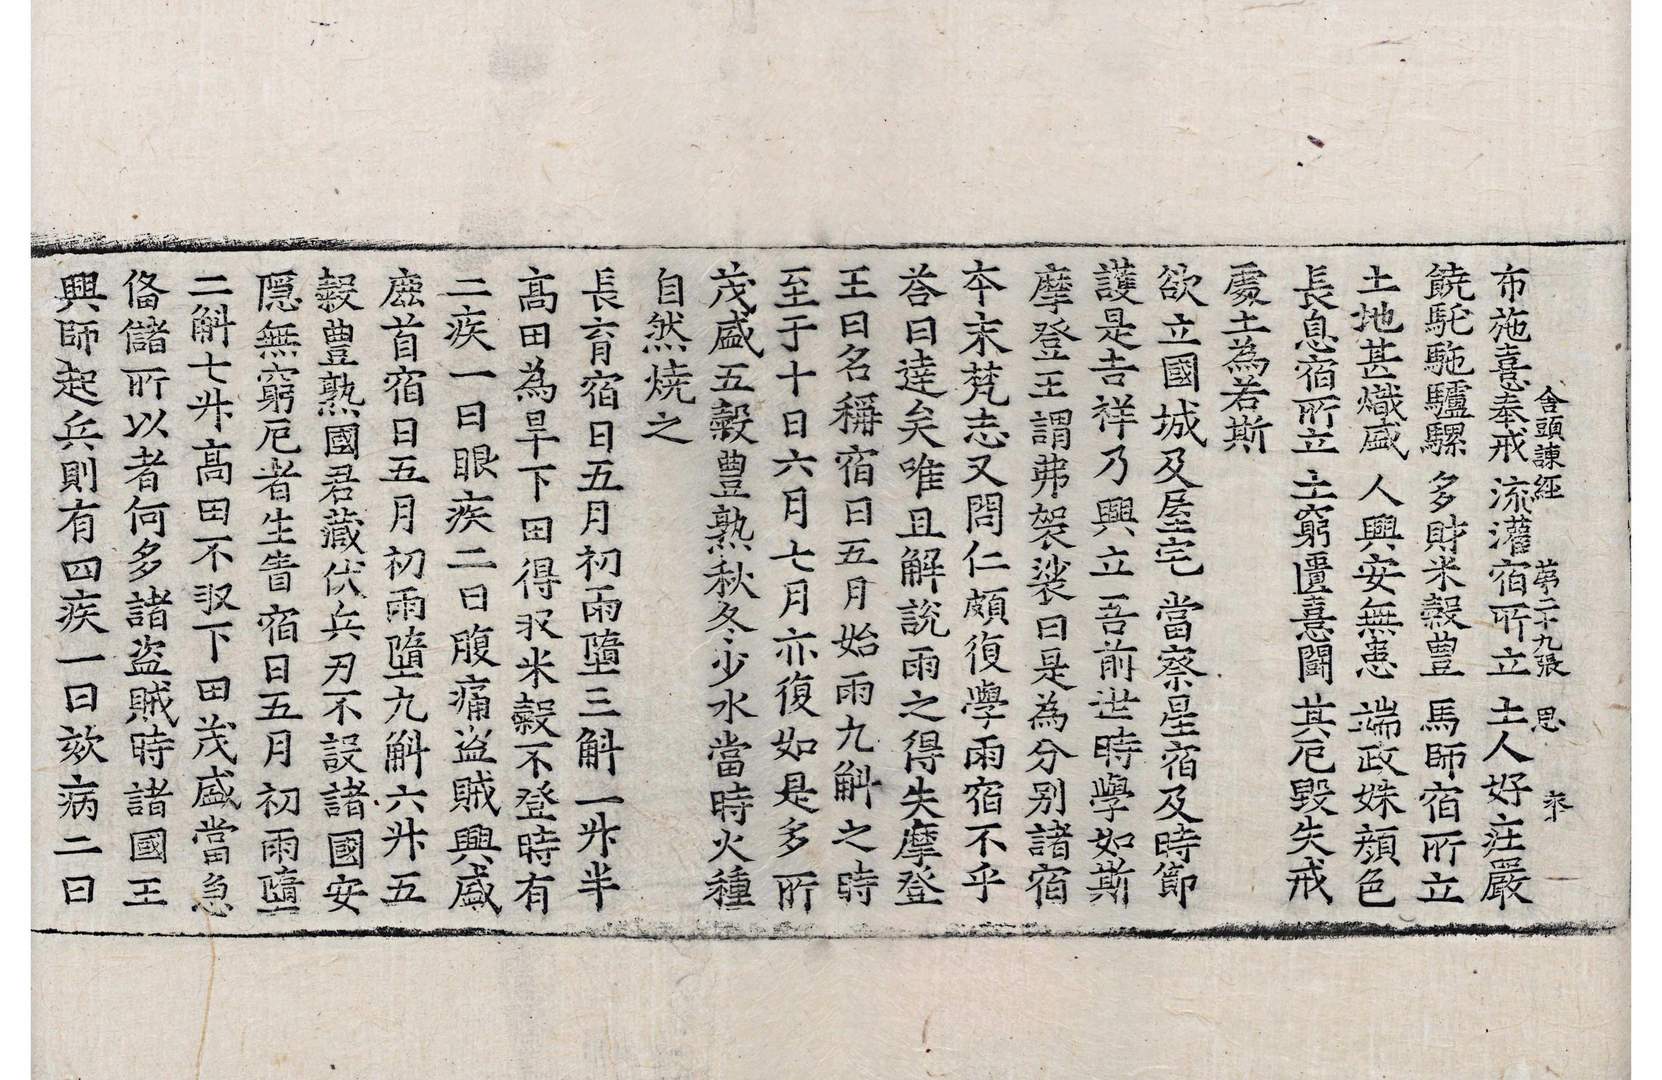 舎頭諫經 苐二十九張 思 泰
布施憙奉戒 流灌宿所立 土人好莊嚴
饒駝駞驢騾 多財米穀豊 馬師宿所立
土地甚熾盛 人興安無恚 端政姝顔色
長息宿所立 土窮匱憙鬪 其厄毀失戒
處土為若斯
欲立國城及屋宅 當察星宿及時節
護是吉祥乃興立 吾前世時學如斯
摩登王謂弗袈裟曰是為分别諸宿
夲末梵志又問仁頗復學雨宿不乎
荅曰達矣唯且解說雨之得失摩登
王曰名稱宿日五月始雨九斛之時
至于十日六月七月亦復如是多所
茂盛五穀豊熟秋冬少水當時火種
自然燒之
長育宿日五月初雨墮三斛一升半
高田為旱下田得收米穀不登時有
二疾一曰眼疾二曰腹痛盜賊興盛
鹿首宿日五月初雨墮九斛六升五
穀豊熟國君藏伏兵刃不設諸國安
隱無窮厄者生眚宿日五月初雨墮
二斛七升高田不收下田茂盛當急
俻儲所以者何多諸盜賊時諸國王
興師起兵則有四疾一曰欬病二曰